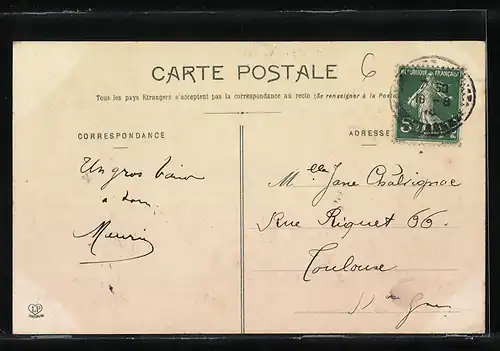 CARTE POSTALE
6
Tous les pays Etrangers n'acceptent pas la correspondance au recto (Se renseigner à la Poste
CORRESPONDANCE
ADRESSE
REPUBLIQUE FRANÇAISE
Un gros baiser
à tous
Mlle Jane Chalvignac
Rue Riquet 66
Toulouse
Hte Gne